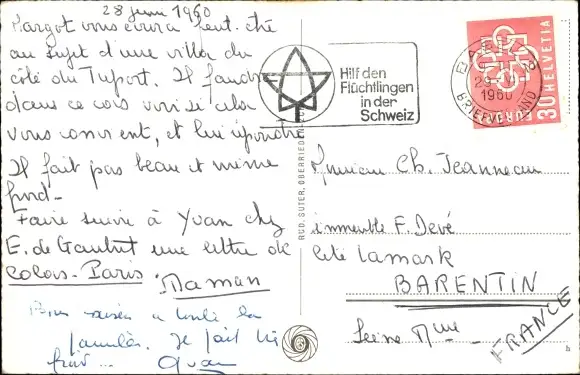 28 juin 1960
Margot vous écrira peut-être
au sujet d'une villa du
côté du Tuport. Il faudra
dans ce cas voir si cela
vous convient, et lui répondre
Il fait pas beau et même
froid -
Faire suivre à Yvan chez
E. de Gautret une lettre de
colos - Paris
Maman
Bons baisers à toute la
famille. Je fait très
froid... Yvan
RUD. SUTER, OBERRIEDEN
Hilf den
Flüchtlingen
in der
Schweiz
1960
BRIEFVERSAND
HELVETIA
30
EUROPA
Monsieur Ch. Jeanneau
immeuble F. Devé
Cité Lamark
BARENTIN
Seine Mme -
FRANCE